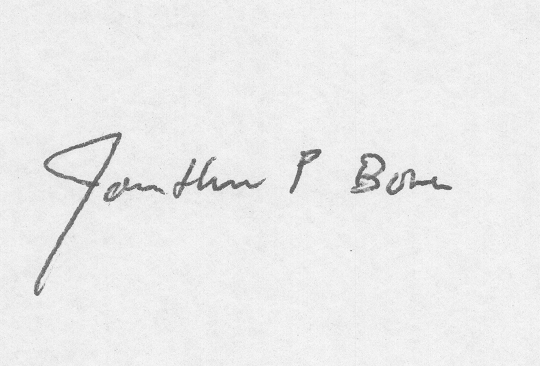 Jonathan P Bowen